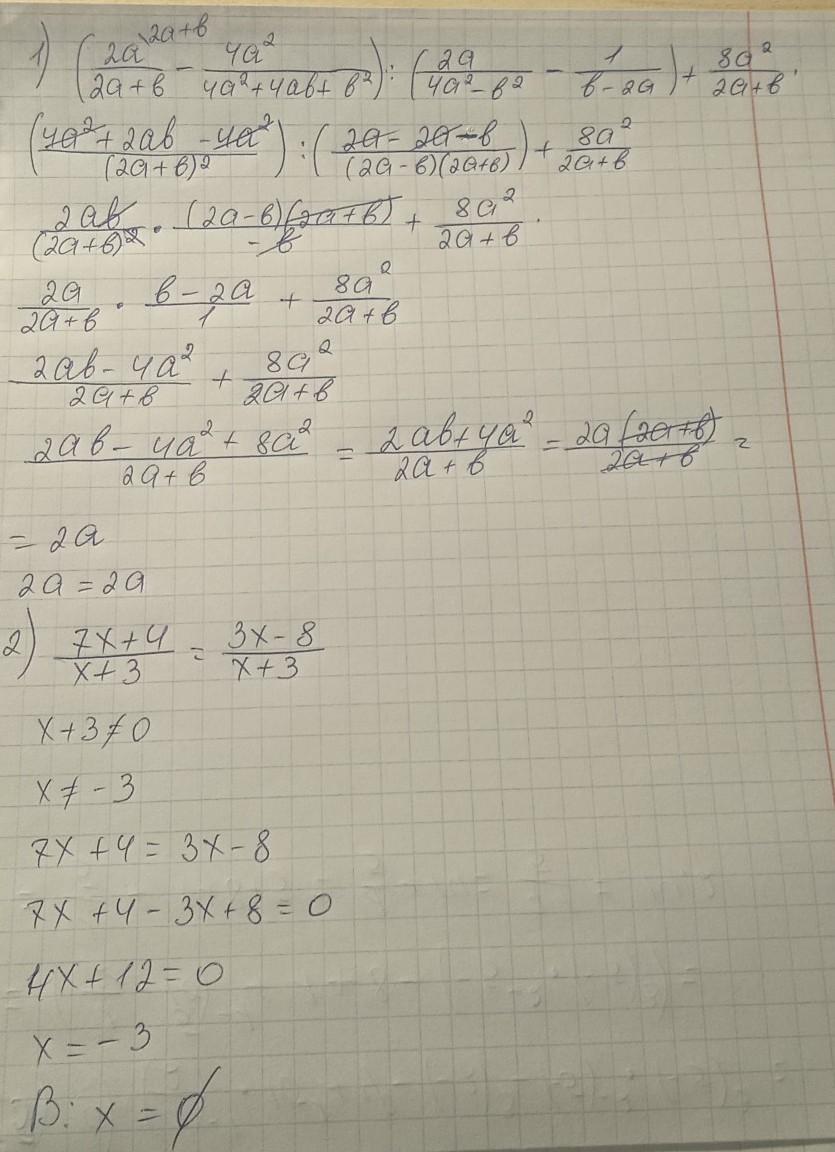 1) (2a^(2a+b / 2a+b − 4a² / 4a²+4ab+b²) : (2a / 4a²−b² − 1 / b−2a) + 8a² / 2a+b .
(4a²+2ab−4a² / (2a+b)²) : (2a−2a−b / (2a−b)(2a+b)) + 8a² / 2a+b
2ab / (2a+b)² · (2a−b)(2a+b) / −b + 8a² / 2a+b .
2a / 2a+b · b−2a / 1 + 8a² / 2a+b
2ab−4a² / 2a+b + 8a² / 2a+b
2ab−4a²+8a² / 2a+b = 2ab+4a² / 2a+b = 2a(2a+b) / 2a+b =
= 2a
2a = 2a
2) 7x+4 / x+3 = 3x−8 / x+3
x+3≠0
x≠−3
7x+4=3x−8
7x+4−3x+8=0
4x+12=0
x=−3
В: x=∅